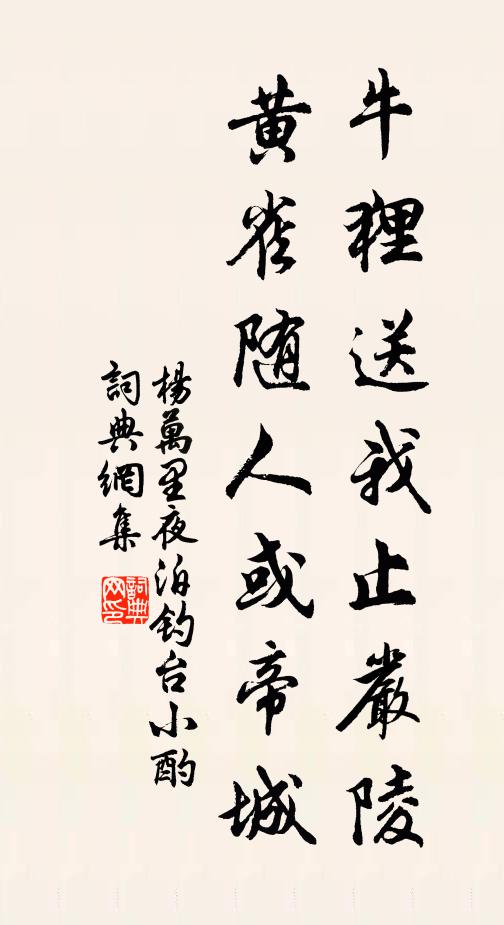 牛狸送我止嚴陵
黄雀随人或帝城
楊萬里夜泊釣台小酌
詞典網集
詞典網印